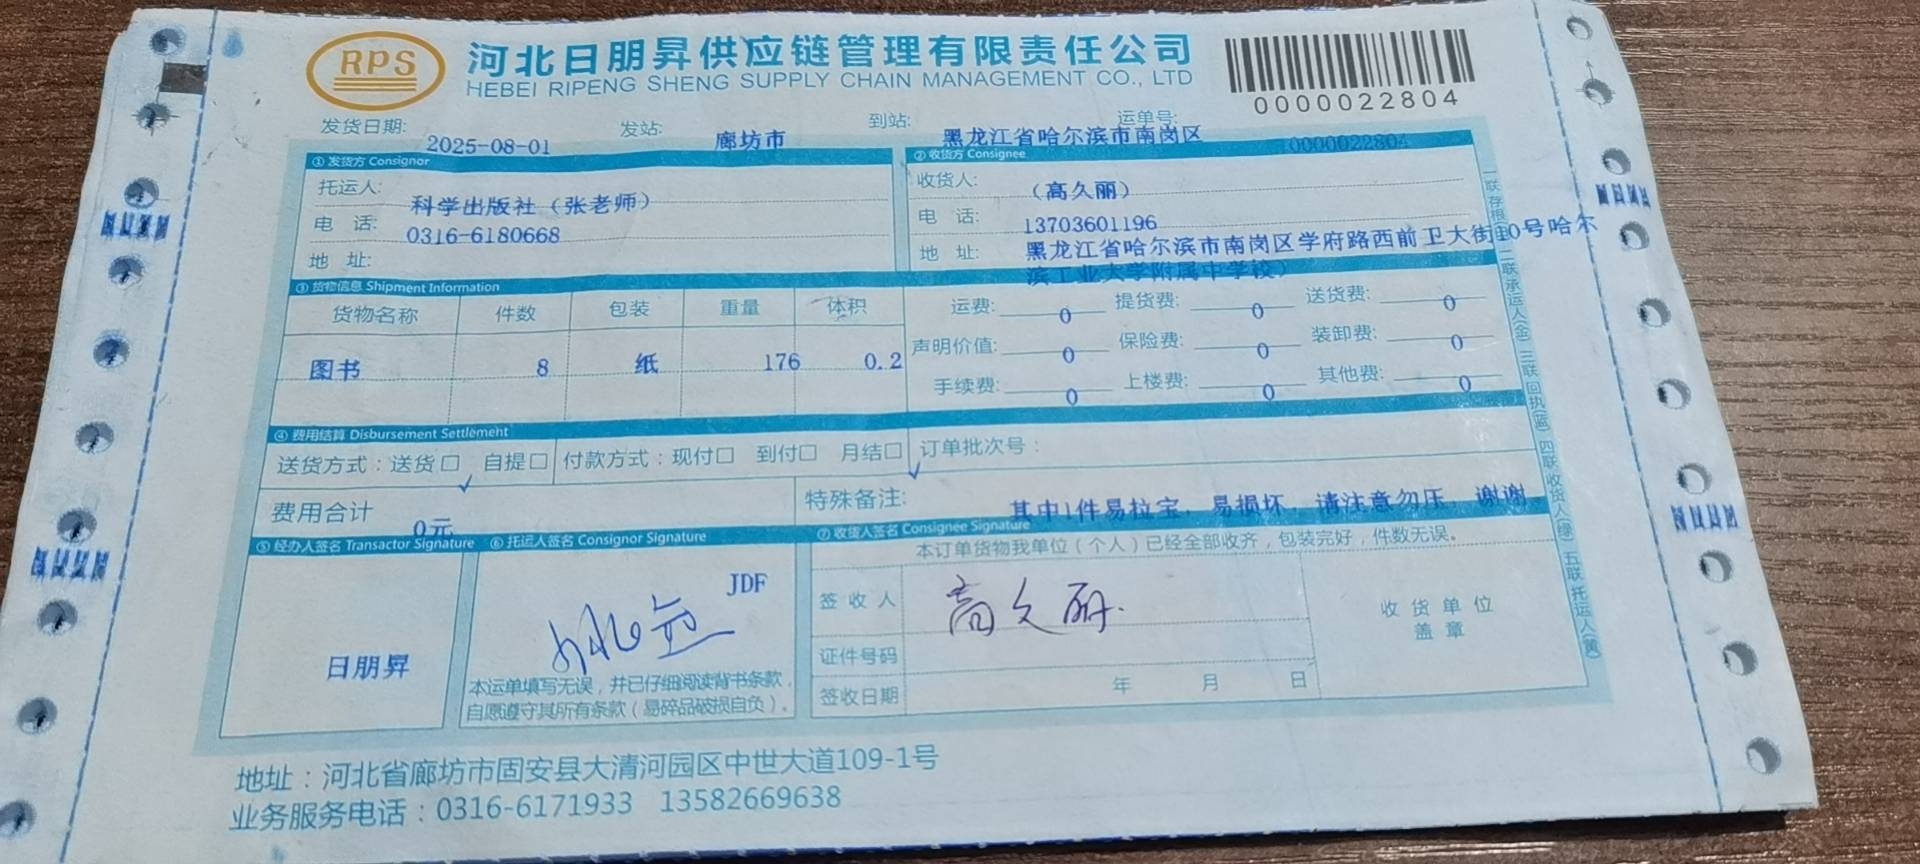 RPS
河北日朋昇供应链管理有限责任公司
HEBEI RIPENG SHENG SUPPLY CHAIN MANAGEMENT CO., LTD
0000022804
发货日期: 2025-08-01 发站: 廊坊市 到站: 黑龙江省哈尔滨市南岗区 运单号: 0000022804
① 发货方 Consignor
托运人: 科学出版社（张老师）
电 话: 0316-6180668
地 址:
② 收货方 Consignee
收货人: （高久丽）
电 话: 13703601196
地 址: 黑龙江省哈尔滨市南岗区学府路西前卫大街10号哈尔
滨工业大学附属中学校）
③ 货物信息 Shipment Information
货物名称 件数 包装 重量 体积
图书 8 纸 176 0.2
运费: 0 提货费: 0 送货费: 0
声明价值: 0 保险费: 0 装卸费: 0
手续费: 0 上楼费: 0 其他费: 0
④ 费用结算 Disbursement Settlement
送货方式：送货□ 自提□ 付款方式：现付□ 到付□ 月结□ 订单批次号：
✓ ✓
费用合计 0元
特殊备注: 其中1件易拉宝，易损坏，请注意勿压，谢谢
⑤ 经办人签名 Transactor Signature
日朋昇
⑥ 托运人签名 Consignor Signature
JDF
本运单填写无误，并已仔细阅读背书条款，
自愿遵守其所有条款（易碎品破损自负）。
⑦ 收货人签名 Consignee Signature
本订单货物我单位（个人）已经全部收齐，包装完好，件数无误。
签收人 高久丽.
证件号码
签收日期 年 月 日
收货单位
盖章
一联存根 二联承运人(金) 三联回执(蓝) 四联收货人(绿) 五联托运人(黄)
地址：河北省廊坊市固安县大清河园区中世大道109-1号
业务服务电话：0316-6171933 13582669638